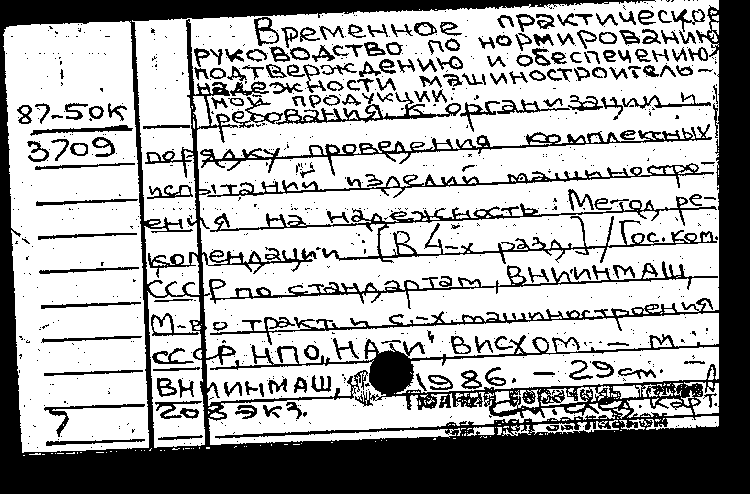 Временное практическое
руководство по нормированию,
подтверждению и обеспечению
надежности машинострoитель-
ной продукции.
87-50К
Требования к организации и
3709
порядку проведения комплексных
испытаний изделий машиностро-
ения на надежность: Метод. ре-
комендации: [В 4-х разд.] / Гос.ком.
СССР по стандартам, ВНИИНМАШ,
М-во тракт. и с.-х. машиностроения
СССР, НПО „НАТИ", ВИСХОМ. – М.:
ВНИИНМАШ, 1986. – 29 см. –
Полный перечень томов
208 экз. см. след. карт.
7
см. под заглавием